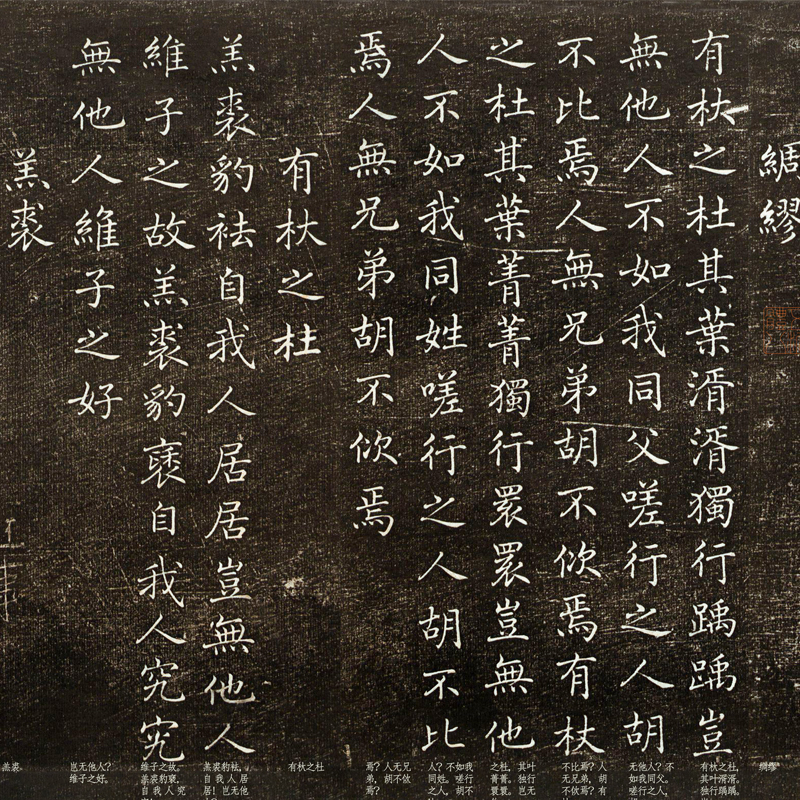 綢繆
有杕之杜其葉湑湑獨行踽踽豈
無他人不如我同父嗟行之人胡
不比焉人無兄弟胡不佽焉有杕
之杜其葉菁菁獨行睘睘豈無他
人不如我同姓嗟行之人胡不比
焉人無兄弟胡不佽焉
有杕之杜
羔裘豹袪自我人居居豈無他人
維子之故羔裘豹褎自我人究究
無他人維子之好
羔裘
绸缪
有杕之杜,
其叶湑湑。
独行踽踽。
无他人?不
如我同父。
嗟行之人,
不比焉?人
无兄弟,胡
不佽焉?有
之杜,其叶
菁菁。独行
睘睘。岂无
人?不如我
同姓。嗟行
之人,
焉?人无兄
弟,胡不佽
焉?
有杕之杜
羔裘豹袪,
自我人居
居!岂无他
维子之故。
羔裘豹褎,
自我人究
岂无他人?
维子之好。
羔裘